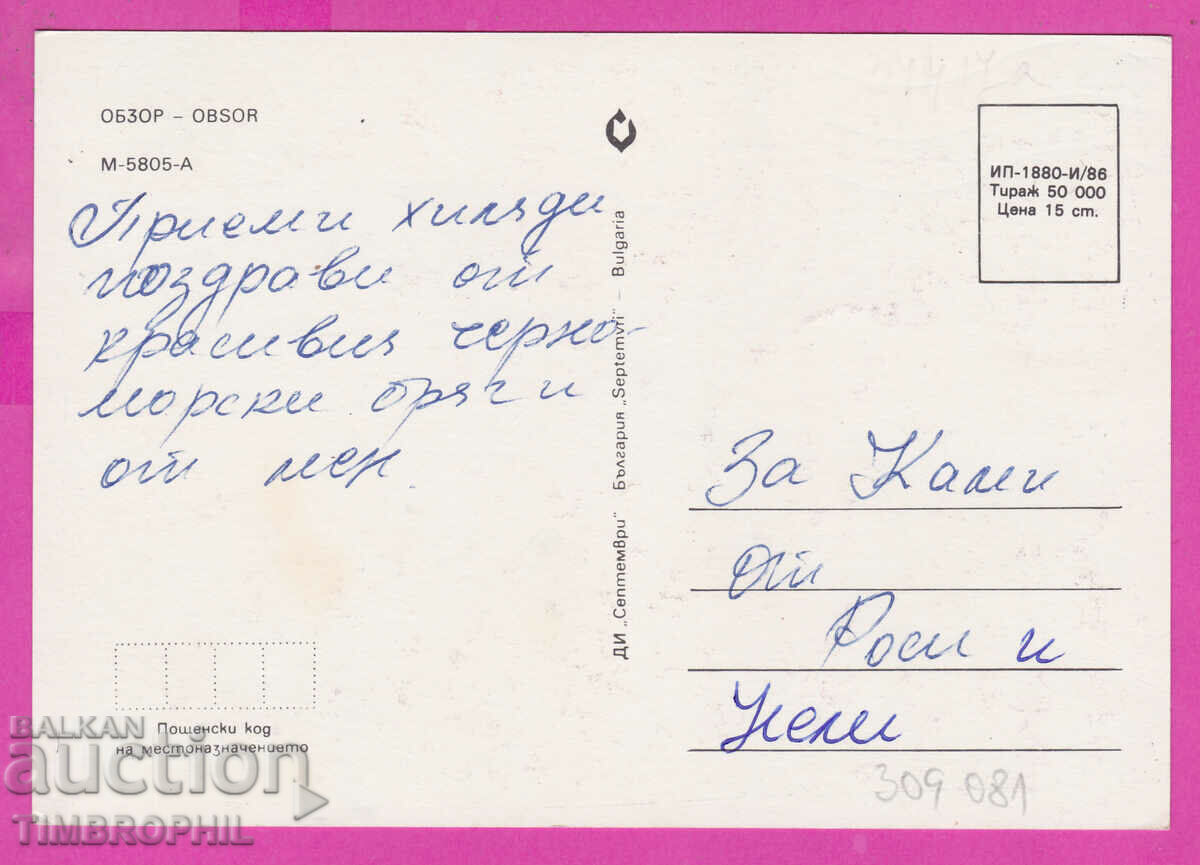 ОБЗОР – OBSOR
М-5805-А
Приеми хиляди
поздрави от
красивия черно-
морски бряг и
от мен.
ДИ „Септември" България „Septemvri" – Bulgaria
ИП-1880-И/86
Тираж 50 000
Цена 15 ст.
За Ками
от
Роси и
Нели
Пощенски код
на местоназначението
309 081
BALKAN
auction
TIMBROPHIL